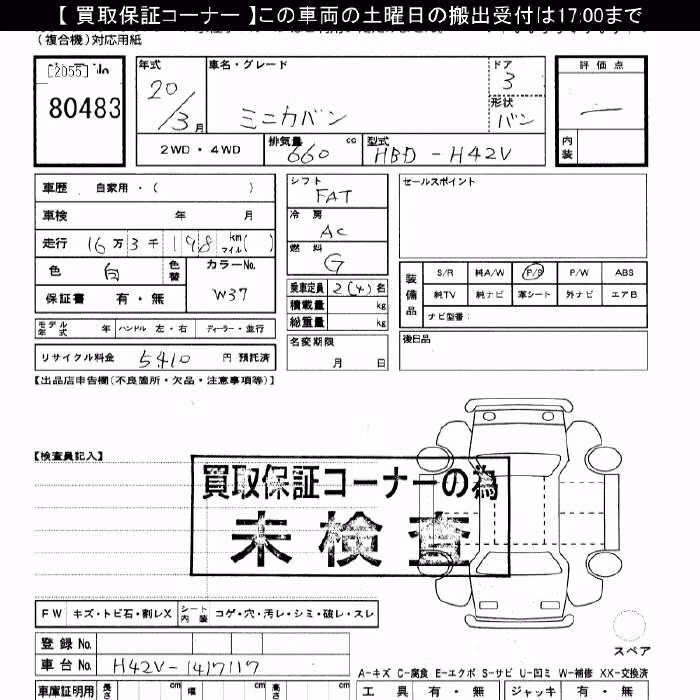 【 買取保証コーナー 】この車両の土曜日の搬出受付は17:00まで
(複合機)対応用紙
[2055] No
80483
年式 車名・グレード ドア 評価点
20/3月 ミニカバン 3 形状 バン 一
2WD・4WD 排気量 660 cc 型式 HBD-H42V 内装
車歴 自家用・( )
車検 年 月
走行 16万3千198 km マイル( )
色 白 色替 カラーNo. W37
保証書 有・無
モデル年式 年 ハンドル 左・右 ディーラー・並行
リサイクル料金 5410 円 預託済
シフト FAT
冷房 AC
燃料 G
乗車定員 2(4)名
積載量 kg
総重量 kg
名変期限 月 日
セールスポイント
装備品 S/R 純A/W P/S P/W ABS
純TV 純ナビ 革シート 外ナビ エアB
ナビ型番:
後日品
【出品店申告欄(不良箇所・欠品・注意事項等)】
【検査員記入】
買取保証コーナーの為
未検査
FW キズ・トビ石・割レX シート内装 コゲ・穴・汚レ・シミ・破レ・スレ
登録 No.
車台 No. H42V-1417117
スペア
A-キズ C-腐食 E-エクボ S-サビ U-凹ミ W-補修 XX-交換済
車庫証明用 長さ cm 幅 cm 高さ cm 工具 有・無 ジャッキ 有・無